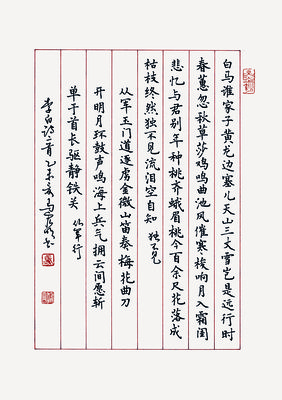 白马谁家子黄龙边塞儿天山三丈雪岂是远行时
春蕙忽秋草莎鸡鸣曲池风催寒梭响月入霜闺
悲忆与君别年种桃齐蛾眉桃今百余尺花落成
枯枝终然独不见流泪空自知 独不见
从军玉门道逐虏金微山笛奏梅花曲刀
开明月环鼓声鸣海上兵气拥云间愿斩
单于首长驱静铁关 从军行
李白诗二首乙未